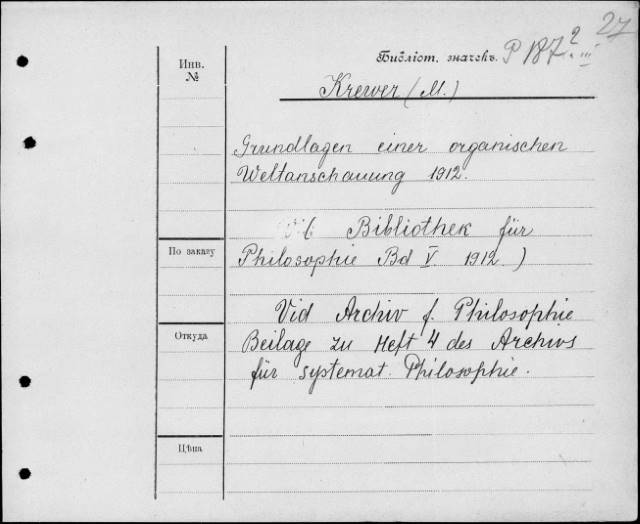 27
Инв.
№
Библіот. значекъ. P 187
Krewer (M.)
Grundlagen einer organischen
Weltanschauung 1912.
( Bibliothek für
По заказу
Philosophie Bd V. 1912.)
Vid Archiv f. Philosophie
Откуда
Beilage zu Heft 4 des Archivs
für systemat. Philosophie.
Цѣна